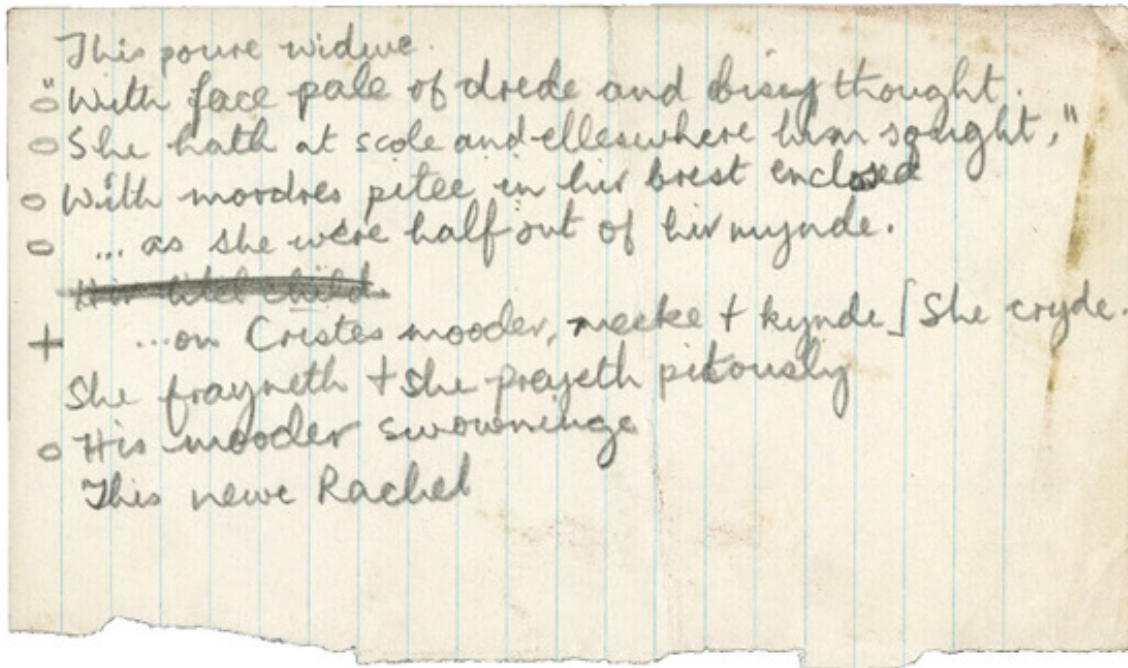 This poure widwe.
"With face pale of drede and bisy thought.
She hath at scole and elleswhere him sought,"
With moodres pitee in hir brest enclosed
... as she were half out of hir mynde.
Hir litel child.
+ ...on Cristes mooder, meeke + kynde [She cryde.
She frayneth + she preyeth pitously
His mooder swowninge
This newe Rachel